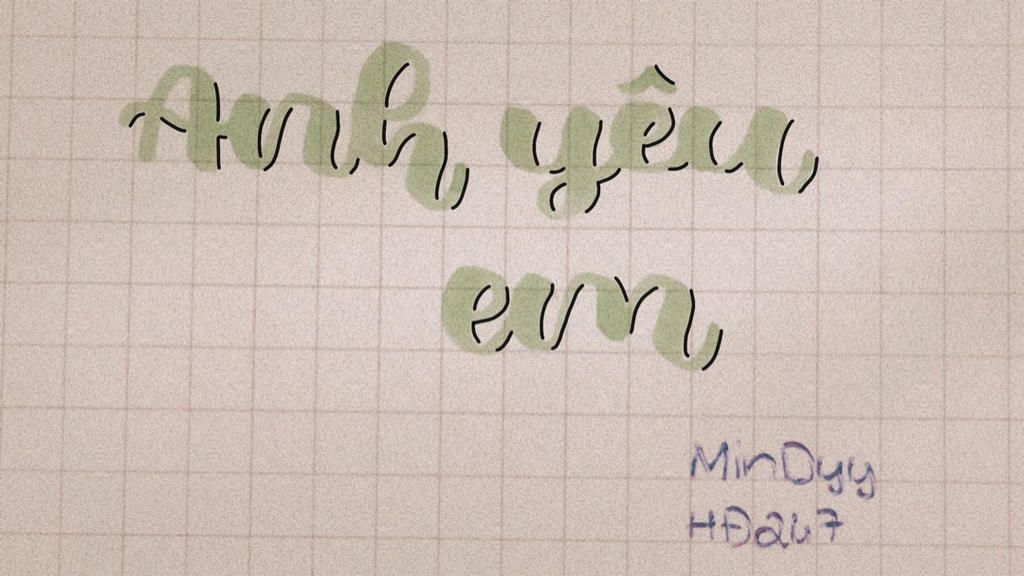 Anh yêu
em
MinDyy
HĐ247